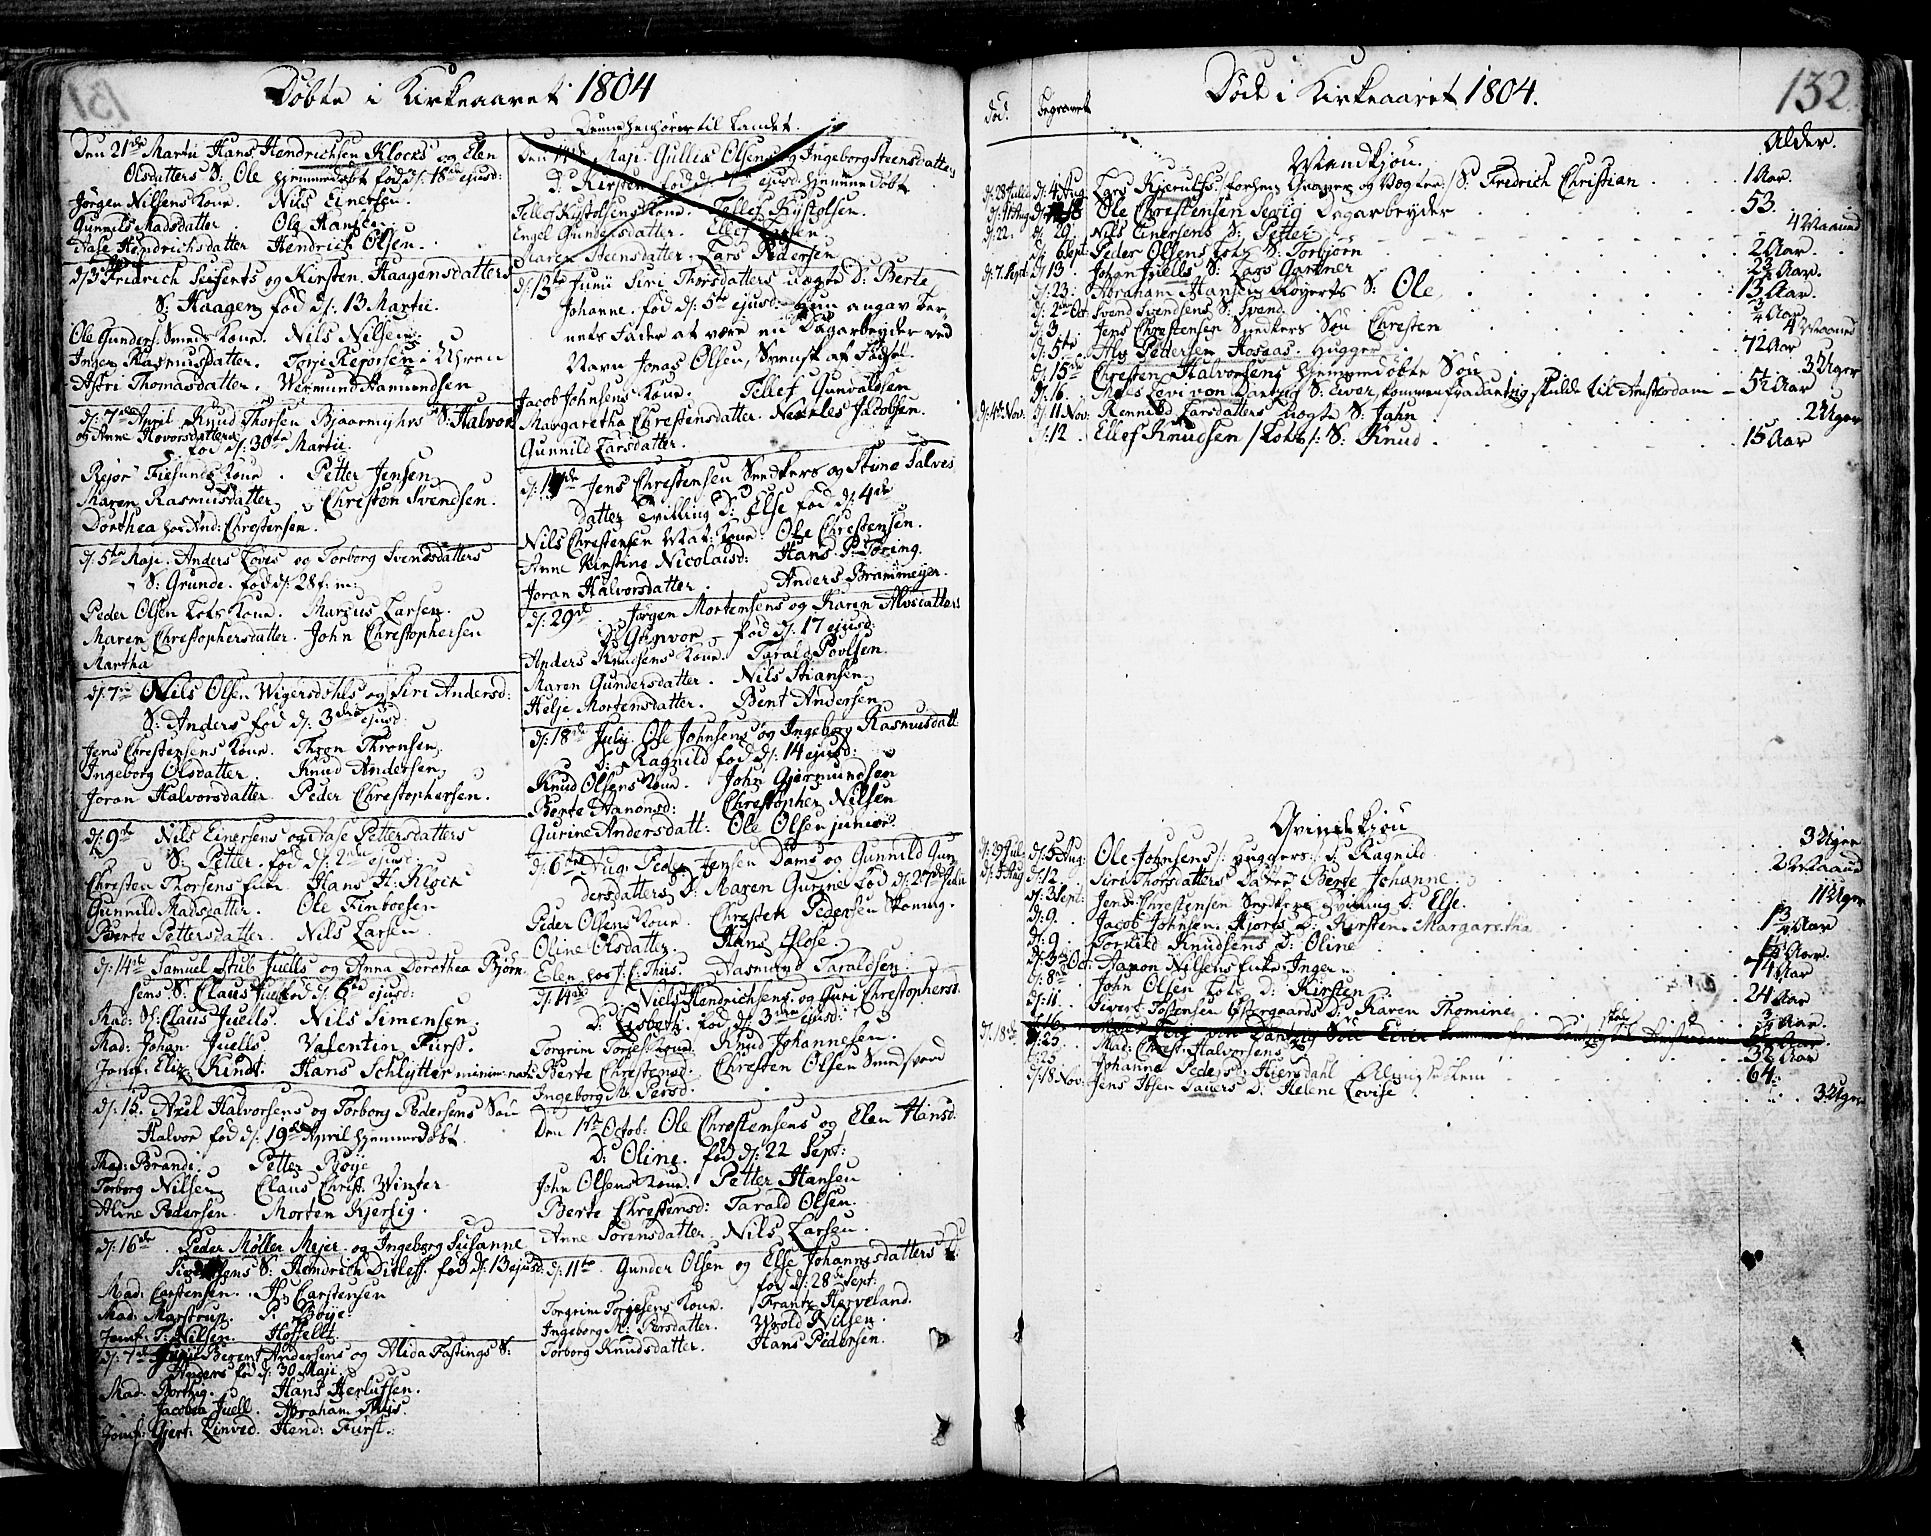 Døbte i Kirkeaaret 1804
Den 21de Martii Hans Hendrichsen Klocks og Elen
Olsdatters S: Ole hjemmedøbt fød d: 18de ejusd:
Jørgen Nilsens Kone. Nils Einersen.
Gunnild Madsdatter Ole Hansen.
Aase Hendrichsdatter Hendrich Olsen.
Fridrich Seiferts og Kirsten Haagensdatters
S: Haagen fød d: 13 Martii.
Ole Gunders. Smeds Kone. Nils Nilsen
Inger Rasmusdatter. Terje Rejersen Uhren
Astri Thomasdatter. Wermund Aamundsen
d: 7de April Knud Thorsen Bjaarmyhrs S: Halvor
og Anne Hovorsdatters fød d: 30te Martii.
Rejer Fiesunds Kone. Petter Jensen
Maren Rasmusdatter Christen Svendsen.
Dorthea hos And: Christensen.
d: 5te Maji. Anders Loves og Torborg Svendsdatters
S: Grunde. fød d: 28 f: m:
Peder Olsen Lots Kone. Marcus Larsen.
Maren Christophersdatter. John Christophersen
Martha
d: 7de Nils Olsen Wigersdahls og Siri Andersd:
S: Anders fød d: 3die ejusd:
Jens Christensens Kone. Thron Thronsen.
Ingeborg Olsdatter. Knud Andersen
Joran Halvorsdatter. Peder Christophersen.
d: 9de Nils Einersens og Aase Pettersdatters
S: Petter. fød d: 2den ejusd:
Christen Thorsens Enke. Hans H: Klock
Gunnild Madsdatter. Ole Finboesen
Berte Pettersdatter. Nils Larsen
d: 14de Samuel Stub Juells og Anna Dorothea Bjørn
sens S: Claus Juel fød d: 6te ejusd:
Mad: Sl: Claus Juells. Nils Simensen.
Mad: Johan Juells. Valentin Fürst.
Jomf: Eliz. Kindt. Hans Schlytter
d: 15. Axel Halvorsens og Torborg Pedersens Søn
Halvor fød d: 19de April hjemmedøbt.
Mad: Brandt. Petter Bøije
Torborg Nilsen Claus Christ. Winter
Aline Pedersen. Morten Kjersig.
d: 16de Peder Møller Mejer og Ingeborg Susanne
S: Hendrich Ditleff. fød d: 13 ejusd:
Mad: Carstensen. Hs Carstensen
Mad: Marstrup. P. Bøije
Jomf: T: Nilsen. Hoffellt
d: 7de Junii Berent Andersens og Alida Fastings S:
Anders fød d: 30 Maji.
Mad. Borthig. Hans Herlufsen.
Jacobea Juell. Abraham Thiis.
Jomf: Gjert: Linved. Hend: Fürst.
Denne henhører til Landet.
Den 14de Maji Gullis Olsens og Ingeborg Steensdatters
D: Kirsten fød d: 7de ejusd: hjemme døbt
Tellef Kystolsens Kone. Tellef Kystolsen.
Engel Gundersdatter. Ellef Larsen
Maren Steensdatter. Lars Pedersen
d: 13te Junii Siri Thorsdatters uægte D: Berte
Johanne. fød d: 5te ejusd: hun angav Bar-
nets Fader at være en Dagarbeyder ved
Navn Jonas Olsen, Svensk af Fødsel.
Jacob Johnsens Kone. Tellef Gunvaldsen
Margaretha Christensdatter. Jacobsen.
Gunnild Larsdatter.
Jens Christensen Snedkers og Stine Talves
datter Tvilling D: Else fød d: 4de
Nils Christensen Mat: Kone Ole Christensen.
Anne Kirstine Nicolaisd: Hans P: Tøring.
Joran Halvorsdatter. Anders Brammeyer.
d: 29de Jørgen Mortensens og Karen Alvsdatters
D: Gunvor fød d: 17 ejusd:
Anders Knudsens Kone. Tarald Povlsen.
Maren Gundersdatter. Nils Stiansen
Helje Mortensdatter. Bent Andersen
d: 18de July. Ole Johnsens og Ingeborg Rasmusdatt
D: Ragnild fød d: 14 ejusd:
Knud Olsens Kone. John Gjermundsen
Berte Aanonsd: Christopher Nilsen
Gurine Andersdatt: Ole Olsen junior.
d: 6te Aug: Peder Jensen Dams og Gunnild Gun
dersdatters D: Maren Gurine fød d: 27de Julii
Peder Olsens Kone Christen Pedersen Skoning.
Oline Olsdatter. Hans Hose.
Elen hos J: C: Thiis. Aasmund Taraldsen.
d: 14de Niels Hendrichsens og Guri Christophersd:
D: Lisbet. fød d: 3die ejusd:
Torgrim Torjes: Kone Knud Johannesen.
Berte Christensd: Christen Olsen Smedsvend
Ingeborg M: Persd:
Den 1ste Octob: Ole Christensens og Elen Hansd:
D: Oline. fød d: 22 Sept:
John Olsens Kone. Petter Hansen
Berte Christensd: Tarald Olsen.
Anne Sørensdatter Nils Larsen.
d: 11te Gunder Olsen og Else Johannesdatters
fød d: 28de Sept:
Torgrim Torjesens Kone. Frantz Herveland.
Ingeborg M: Persdatter. Wrold Nilsen
Torborg Knudsdatter. Hans Pedersen.
Døde i Kirkeaaret 1804.
132
død. begravet
Alder.
Mandkjøn.
d: 28 Julii d: 4 Aug Lars Kjerulfs S: Fredrich Christian 1 Aar.
Ole Christensen Sevig Dagarbeyder 53.
d: 22 d: 29. Nils Einersens S: Petter 4 Maaned
Sept: Peder Olsens Lots S: Torbjørn 2 Aar.
d: 7. Sept: d: 13 Johan Juells S: Lars Gartner Aar.
d: 23: Abraham Hansen Røyerts S: Ole. 13 Aar.
d: 2den Oct: Svend Svendsens S: Svend. 3/4 Aar
d: 3. Jens Christensen Snedkers Søn Christen 4 Maaned
d: 5te Alv Pettersen Aosaas. Hugger 72 Aar
d: 15de Christen Halvorsens hjemmedøbte Søn 3 Uger
d: 16. Levi von Dantzig S: Eiver, kommen fra Dantzig skulde til Amsterdam Aar
d: 4de Nov: d: 11 Nov: Rennild Larsdatters uægte S: Jahn 2 Uger
d: 12. Ellef Knudsen /: Lots :/ S: Knud 15 Aar
Qvindekjøn
d: 29 Jul: d: 5 Aug: Ole Johnsens /: Huggers :/ D: Ragnild 3 Uger
d: 12 Siri Thorsdatters Datter Berte Johanne 2 Maaned
d: 3 Sept: Jens Christensen Snedkers Tvilling D: Else. 11 Uger
d: 9. Jacob Johnsen Hjorts D: Kirsten Margaretha Aar
d: 9. Torkild Knudsens D: Oline Aar.
Oct: Aanon Nilsens Enke Inger 74 Aar
d: 8de John Olsen Lots D: Kirsten 24 Aar
d: 11. Sivert Tostensen Østergaards D: Karen Thomine Aar.
d: 16 Levi von Dantzig Søn Eiver kommen fra Dantzig skulde til Amsterdam Aar.
d: 18de d: 23. Mad: Christ: Halvorsens 32 Aar
d: 25 Johanne Pedersd: Hiersdahl 64.
d: 18 Nov: Jens Ibsen Lauers D: Helene Lovise 3 Uger